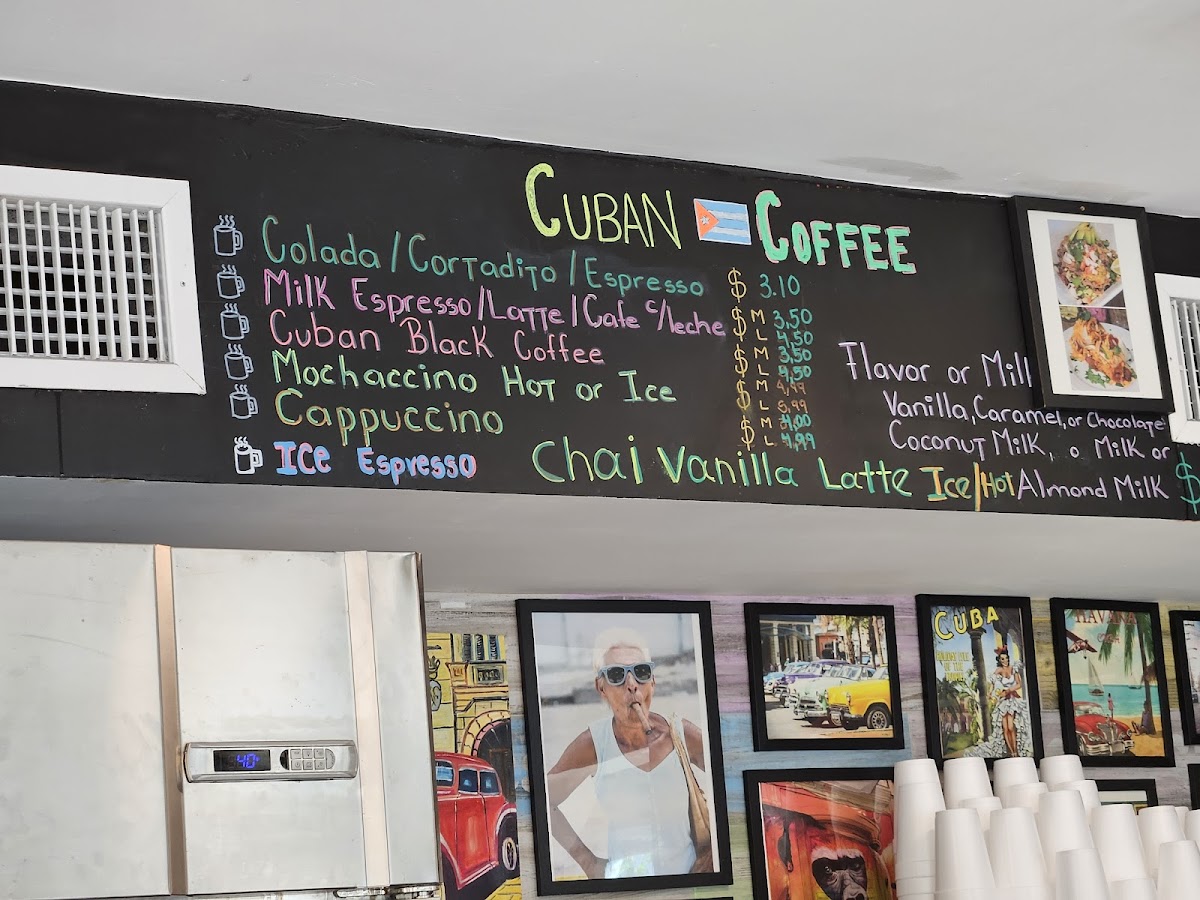 CUBAN COFFEE
Colada / Cortadito / Espresso $ 3.10
Milk Espresso / Latte / Cafe c/leche $ M 3.50
L 4.50
Cuban Black Coffee $ M 3.50
L 4.50
Mochaccino Hot or Ice $ M 4.99
L
Cappuccino $ M 4.00
L 4.99
ICe Espresso
Chai Vanilla Latte Ice/Hot
Flavor or Mill
Vanilla, Caramel, or Chocolate
Coconut Milk, o Milk or
Almond Milk $
40°
CUBA
HAVANA